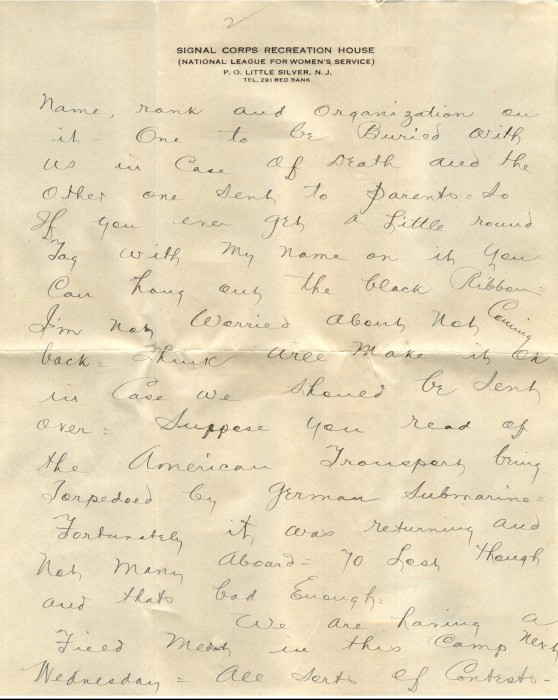 2
SIGNAL CORPS RECREATION HOUSE
(NATIONAL LEAGUE FOR WOMEN'S SERVICE)
P. O. LITTLE SILVER, N. J.
TEL. 291 RED BANK
Name, rank and Organization on
it - One to be Buried with
us in Case Of Death and the
Other one Sent to Parents = So
If you ever get a Little round
Tag with My Name on it you
Can hang out the black Ribbon =
I'm not Worried About Not Coming
back = Think We'll Make it Ok
in Case we should be Sent
Over = Suppose you read of
the American Transport being
Torpedoed by German Submarine =
Fortunately it was returning and
Not Many Aboard = 70 Lost though
and thats bad Enough =
We are having a
Field Meet in this Camp next
Wednesday = All Sorts of Contests -